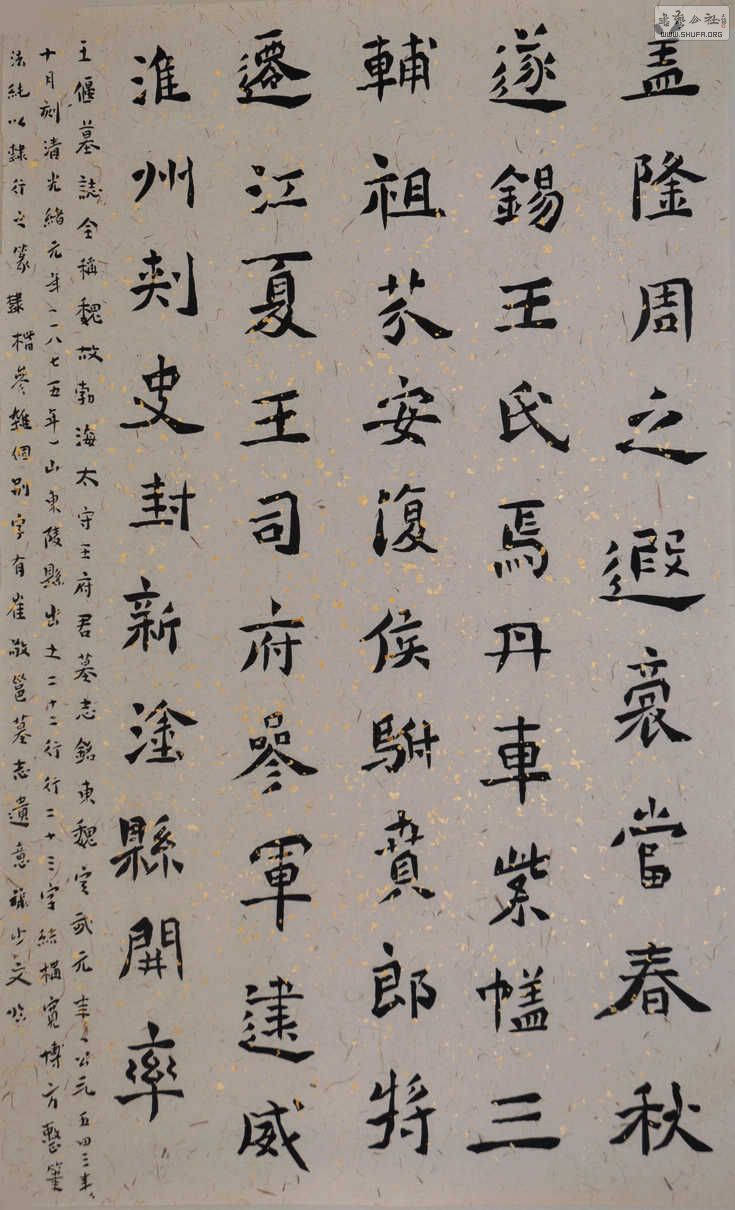 盖隆周之遐裔當春秋
遂錫王氏焉丹車紫幰三
輔祖芬安復侯駙賁郎將
遷江夏王司府參軍建威
淮州刺史封新塗縣開率
王偃墓誌全稱魏故勃海太守王府君墓志銘東魏武元年公元五四三年
十月刻清光緒元年一八七五年山東陵縣出土二十二行行二十三字結構寬博方整筆
法純以隸行之篆隸楷參雜個别字有崔敬邕墓志遺意
书法公社
WWW.SHUFA.ORG